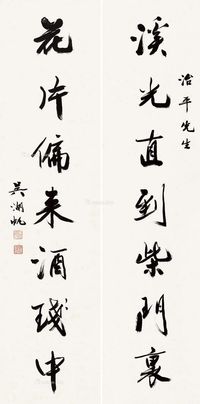 治平先生
溪光直到柴門裏
花片偏来酒琖中
吳湖帆